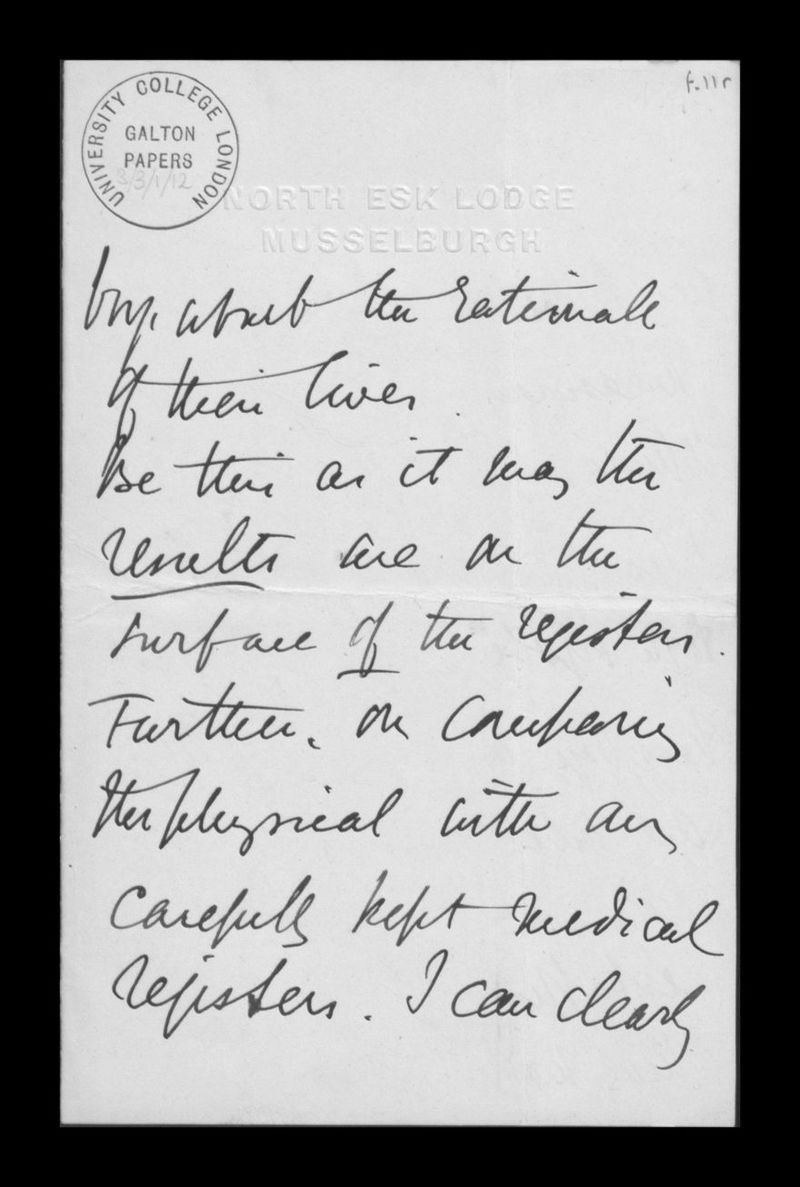 f.11r
UNIVERSITY COLLEGE LONDON
GALTON
PAPERS
3/3/1/12
NORTH ESK LODGE
MUSSELBURGH
boys about the rationale
of their lives.
Be this as it may the
results are on the
surface of the registers.
Further, on comparing
the physical with any
carefully kept medical
registers. I can clearly